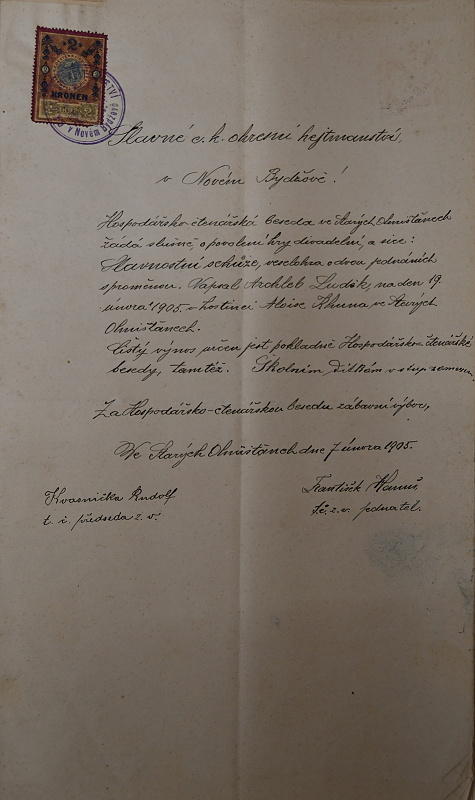 2
KRONEN
v Novém Bydžově
Slavné c. k. okresní hejtmanství,
v Novém Bydžově!
Hospodářsko-čtenářská beseda ve Starých Ohništěnech
žádá slušně, o povolení hry divadelní, a sice:
Slavnostní schůze, veselohra o dvou jednáních
s proměnou. Napsal Archleb Luděk, na den 19.
února 1905. v hostinci Aloise Khuna ve Starých
Ohništěnech.
Čistý výnos určen jest pokladně Hospodářsko-čtenářské
besedy, tamtéž. Školním dítkám vstup zamezen
Za Hospodářsko-čtenářskou besedu zábavní výbor,
Ve Starých Ohništěnech dne 7 února 1905.
Kvasnička Rudolf
t. č. předseda z. v.
František Hanuš,
t. č. z. v. jednatel.